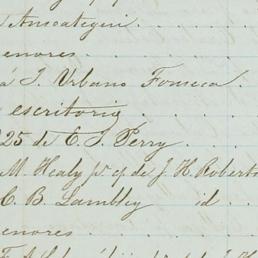 Anzoategui
enores
á J. Urbano Fonseca
escritorio
25 de E. J. Perry
M. Healy pr cp de J. H. Roberts
C. B. Lambley id
enores